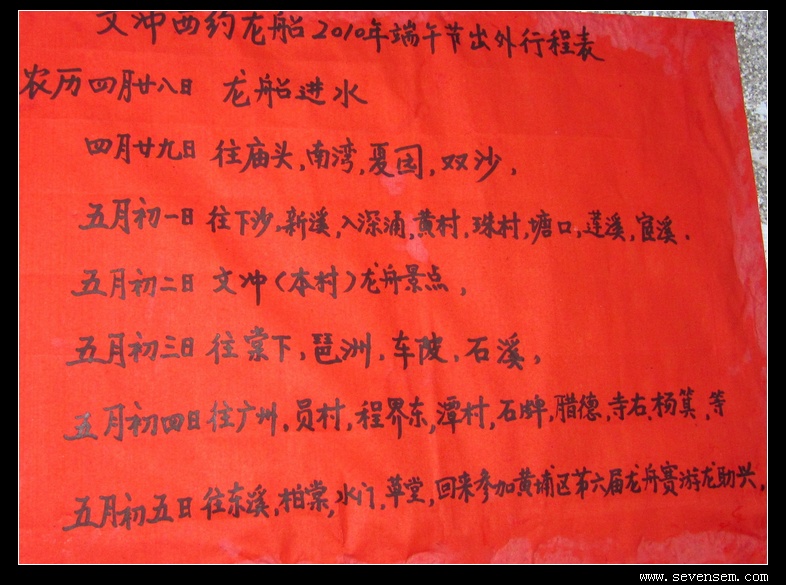 文冲西约龙船2010年端午节出外行程表
农历四月廿八日 龙船进水
四月廿九日 往庙头,南湾,夏园,双沙,
五月初一日 往下沙,新溪,入深涌,黄村,珠村,塘口,莲溪,宦溪.
五月初二日 文冲(本村)龙舟景点,
五月初三日 往棠下,琶洲,车陂,石溪,
五月初四日 往广州,员村,程界东,潭村,石牌,腊德,寺右,杨箕,等
五月初五日 往东溪,柏棠,水门,草堂,回来参加黄埔区第六届龙舟赛游龙助兴,
www.sevensem.com